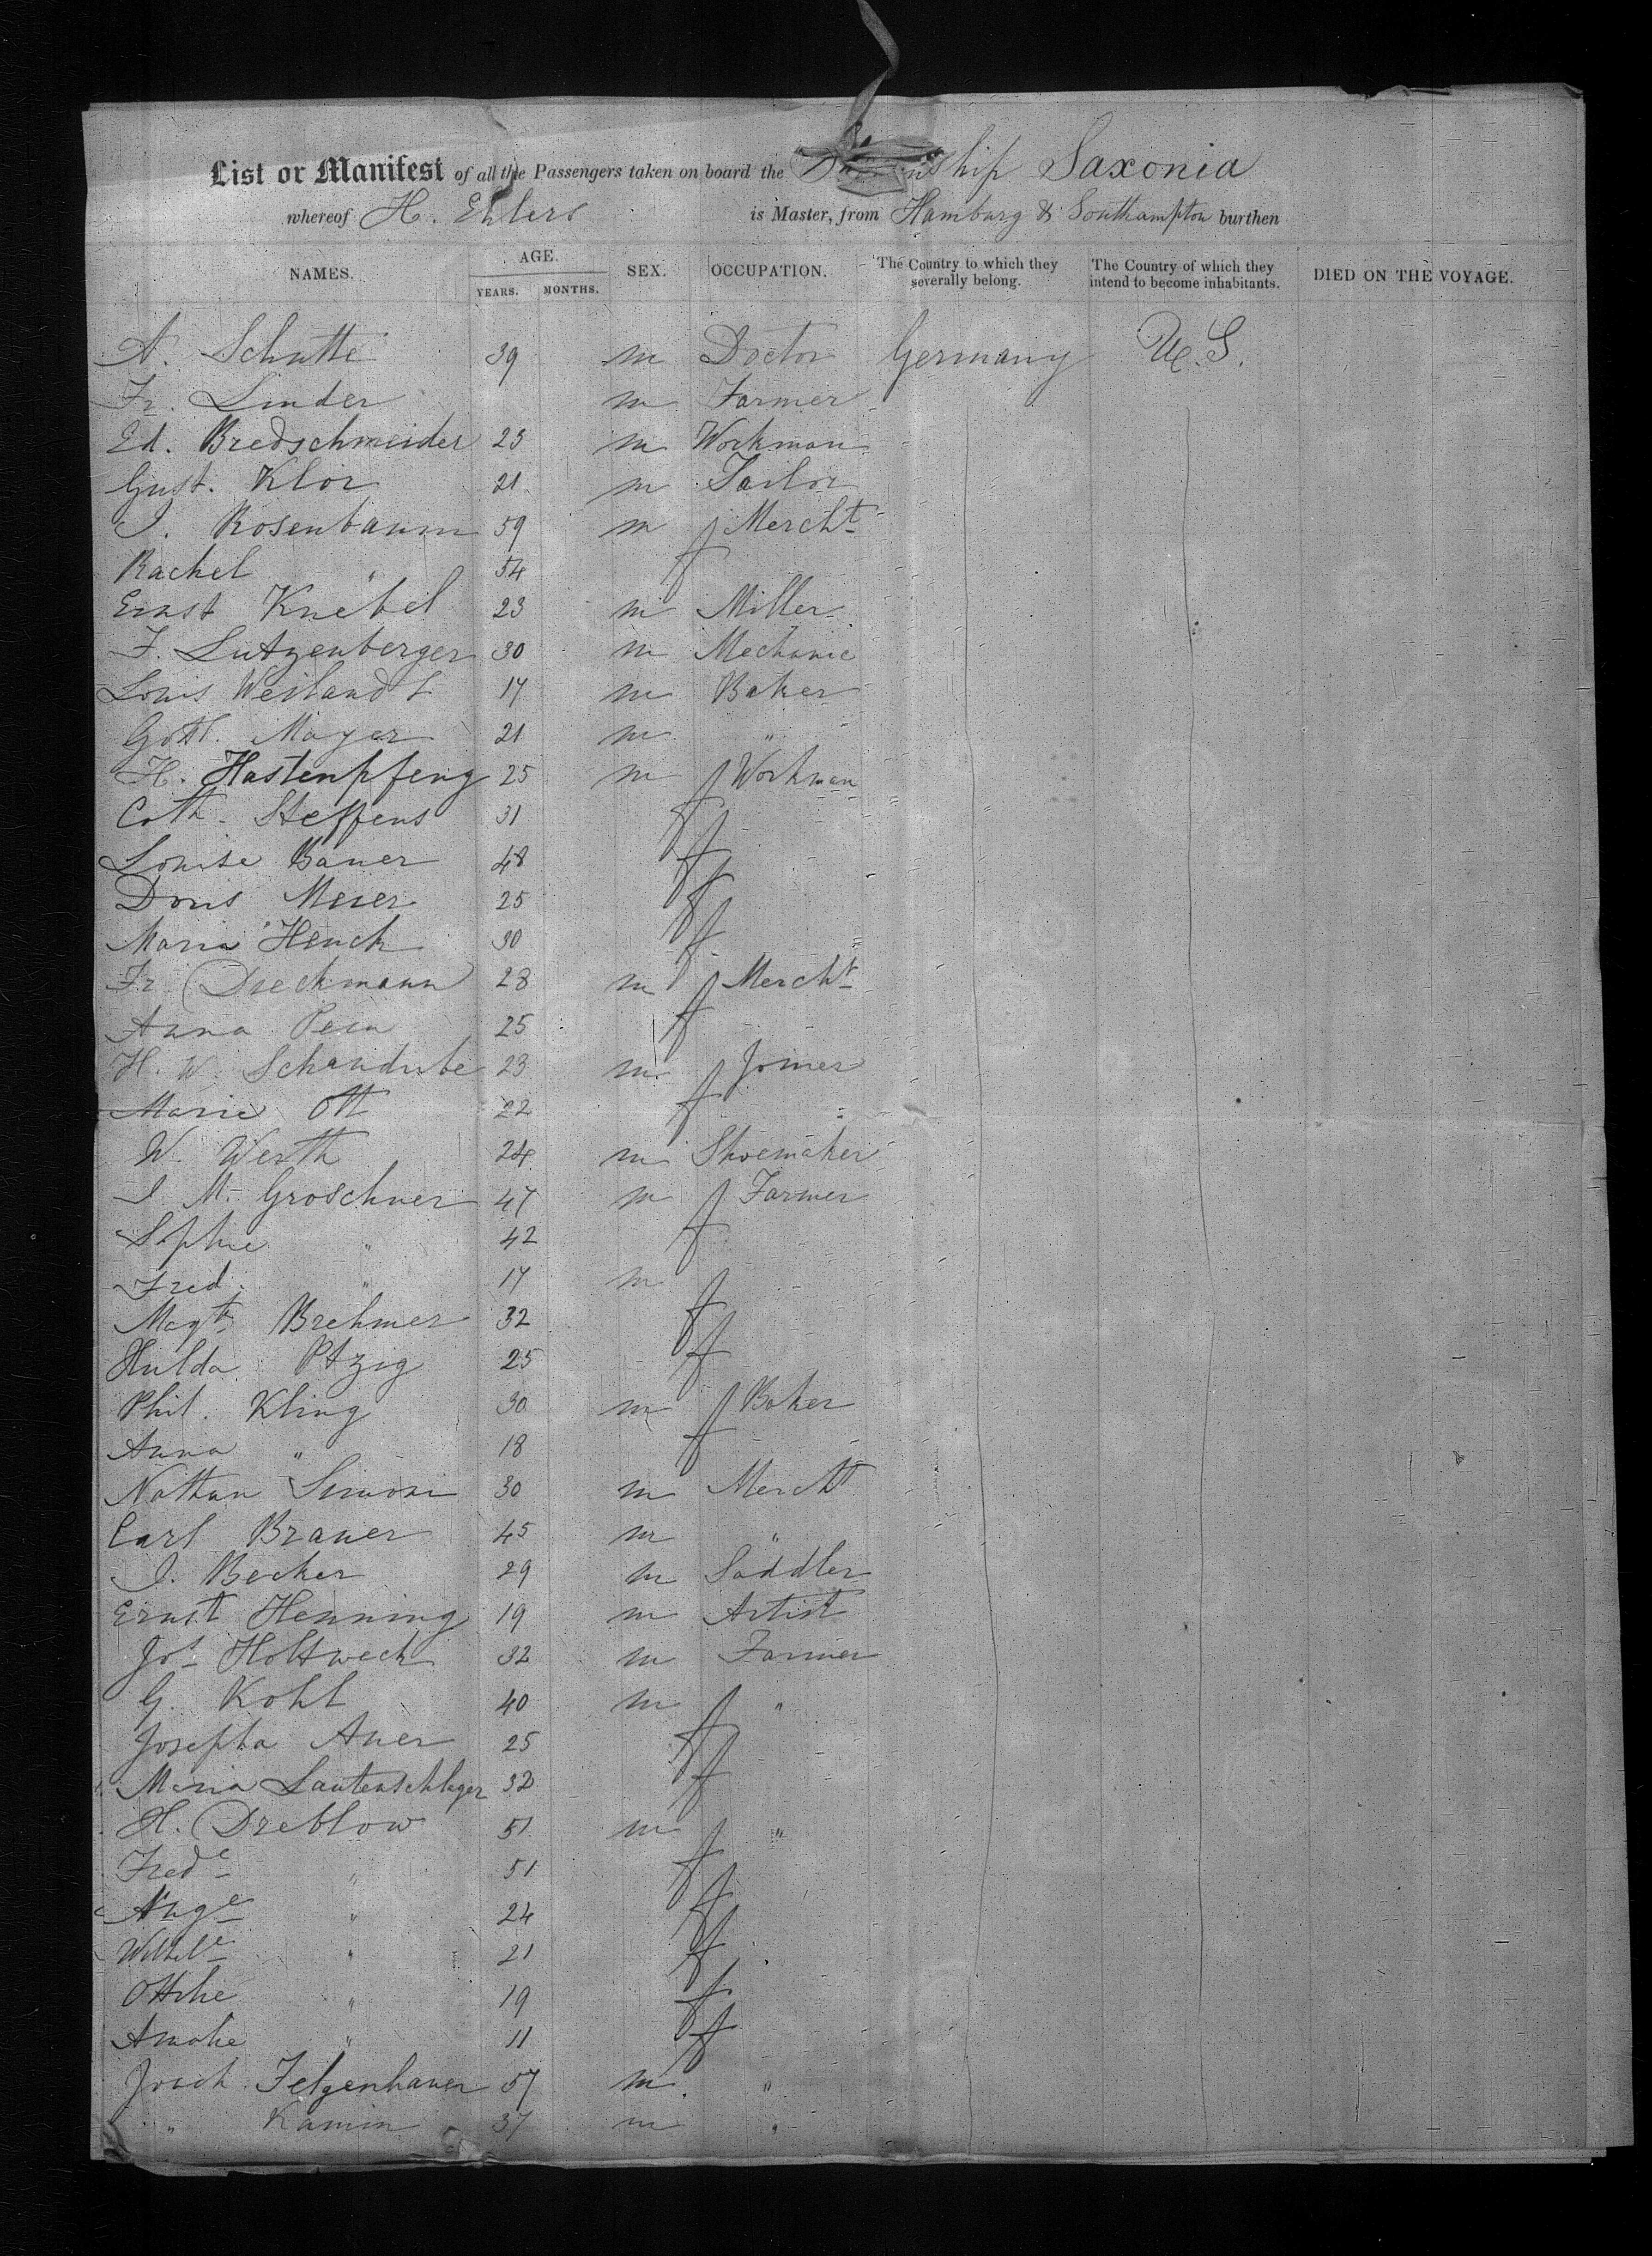 List or Manifest of all the Passengers taken on board the Steamship Saxonia
whereof H. Ehlers is Master, from Hamburg & Southampton burthen
NAMES. AGE. SEX. OCCUPATION. The Country to which they severally belong. The Country of which they intend to become inhabitants. DIED ON THE VOYAGE.
YEARS. MONTHS.
A. Schutte 39 m Doctor Germany U.S.
Fr. Linder m Farmer
Ed. Bredschneider 23 m Workman
Gust. Klor 21 m Tailor
J. Rosenbaum 59 m Mercht
Rachel " 54 f
Ernst Knebel 23 m Miller
F. Lutzenberger 30 m Mechanic
Louis Weilandt 17 m Baker
Gottl. Mayer 21 m "
H. Hastenpfeng 25 m Workman
Cath. Steffens 31 f
Louise Bauer 48 f
Doris Meier 25 f
Maria Henck 30 f
Fr. Dieckmann 28 m Mercht
Anna 25 f
H. W. Schandube 23 m Joiner
Marie Ott 22 f
W. Werth 24 m Shoemaker
J M. Groschner 47 m Farmer
Sophie " 42 f
Fred. " 17 m
Magte Brehmer 32 f
Hulda Ptzig 25 f
Phil. Kling 30 m Baker
Anna " 18 f
Nathan Simon 30 m Mercht
Carl Brauer 45 m "
J. Becker 29 m Saddler
Ernst Henning 19 m Artist
Jos Holtweck 32 m Farmer
G. Kohl 40 m "
Josepha Auer 25 f
Maria Lautenschlager 32 f
H. Dreblow 51 m "
Frede " 51 f
Auge " 24 f
Wilhle " 21 f
Ottilie " 19 f
Amalie " 11 f
Joach. Felgenhauer 57 m "
" Kamin 37 m "